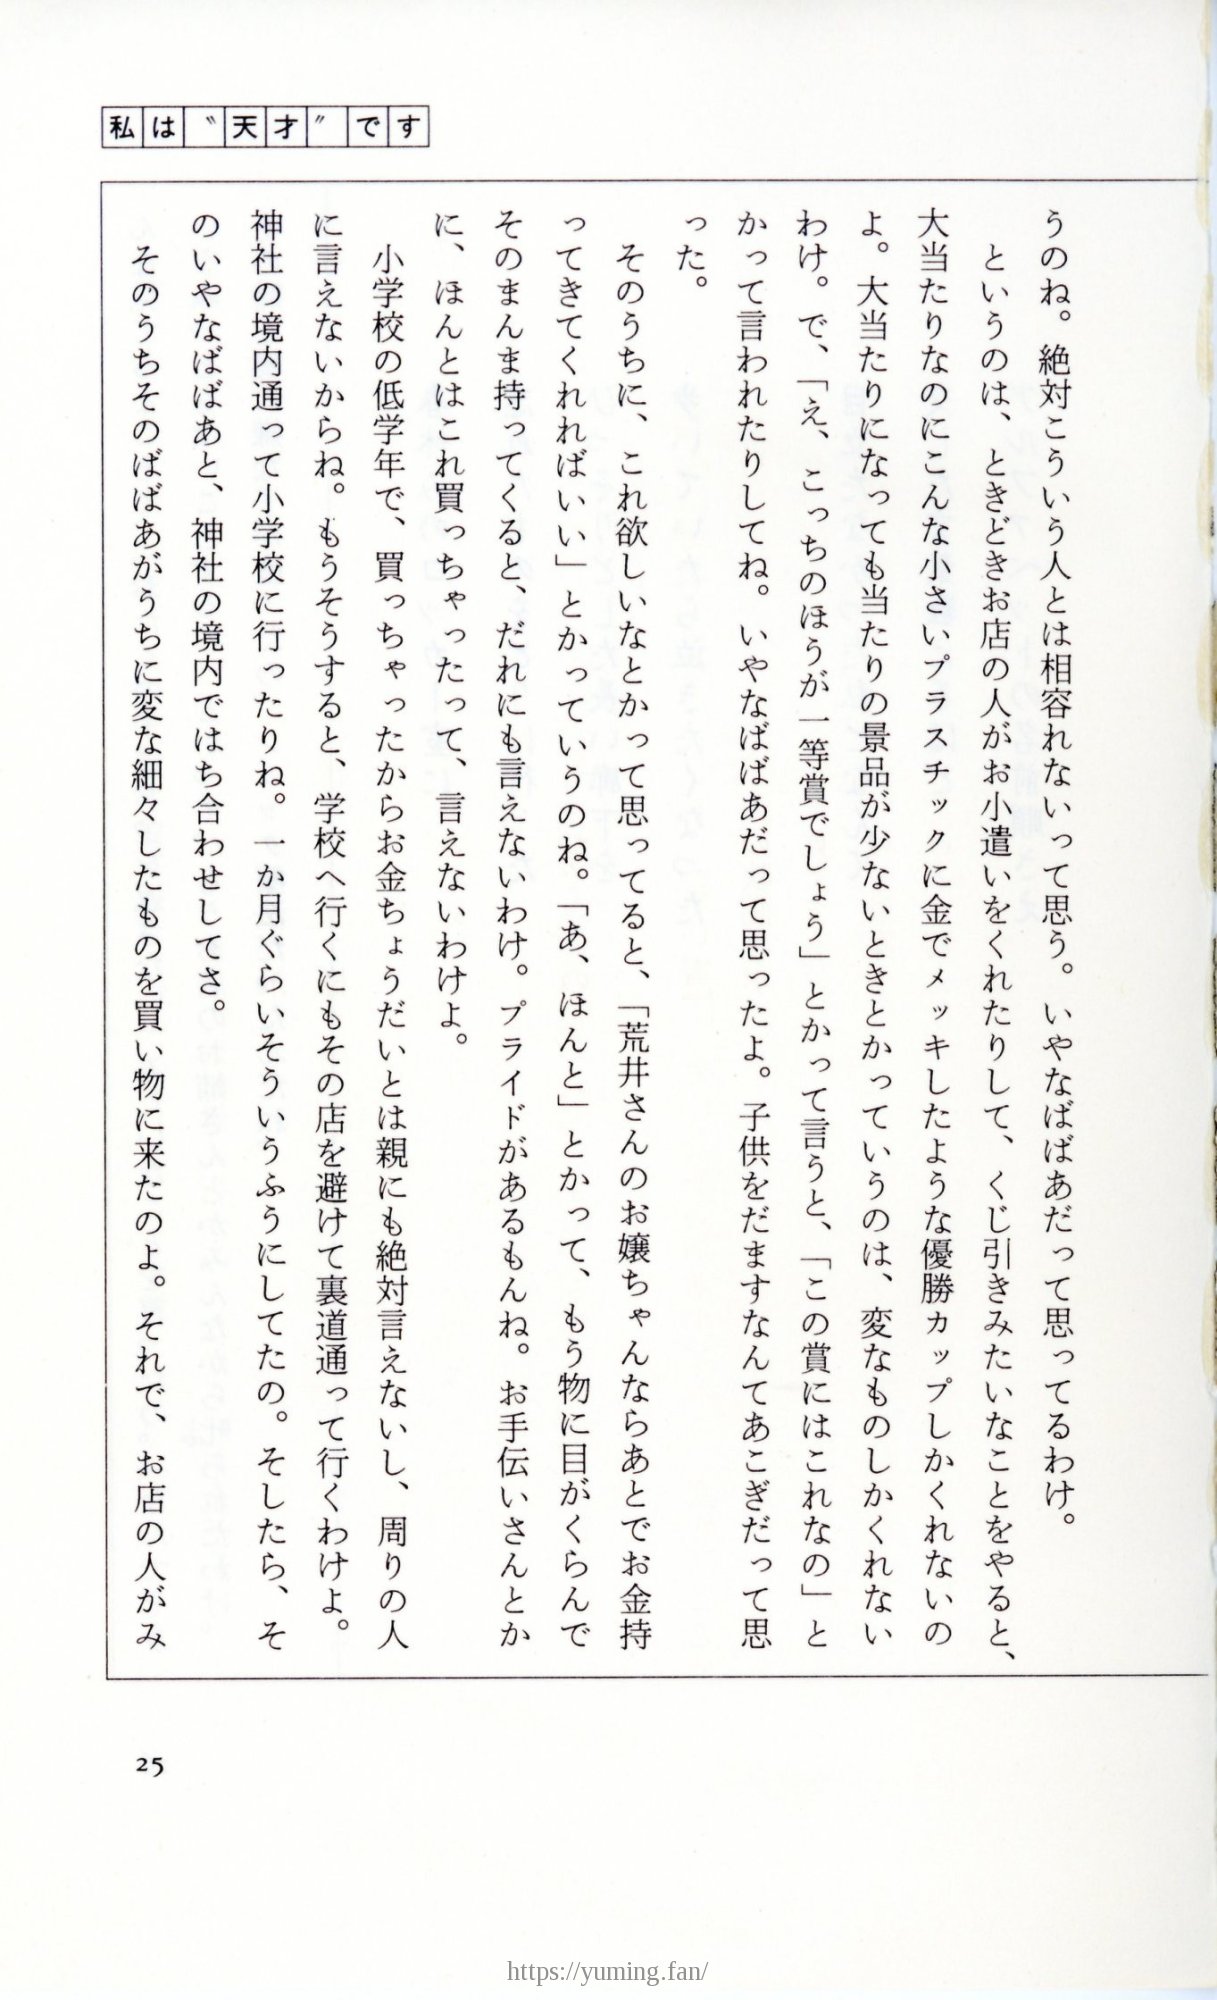 私は〝天才〟です
うのね。絶対こういう人とは相容れないって思う。いやなばばあだって思ってるわけ。
というのは、ときどきお店の人がお小遣いをくれたりして、くじ引きみたいなことをやると、
大当たりなのにこんな小さいプラスチックに金でメッキしたような優勝カップしかくれないの
よ。大当たりになっても当たりの景品が少ないときとかっていうのは、変なものしかくれない
わけ。で、「え、こっちのほうが一等賞でしょう」とかって言うと、「この賞にはこれなの」と
かって言われたりしてね。いやなばばあだって思ったよ。子供をだますなんてあこぎだって思
った。
そのうちに、これ欲しいなとかって思ってると、「荒井さんのお嬢ちゃんならあとでお金持
ってきてくれればいい」とかっていうのね。「あ、ほんと」とかって、もう物に目がくらんで
そのまんま持ってくると、だれにも言えないわけ。プライドがあるもんね。お手伝いさんとか
に、ほんとはこれ買っちゃったって、言えないわけよ。
小学校の低学年で、買っちゃったからお金ちょうだいとは親にも絶対言えないし、周りの人
に言えないからね。もうそうすると、学校へ行くにもその店を避けて裏道通って行くわけよ。
神社の境内通って小学校に行ったりね。一か月ぐらいそういうふうにしてたの。そしたら、そ
のいやなばばあと、神社の境内ではち合わせしてさ。
そのうちそのばばあがうちに変な細々したものを買い物に来たのよ。それで、お店の人がみ
25
https://yuming.fan/